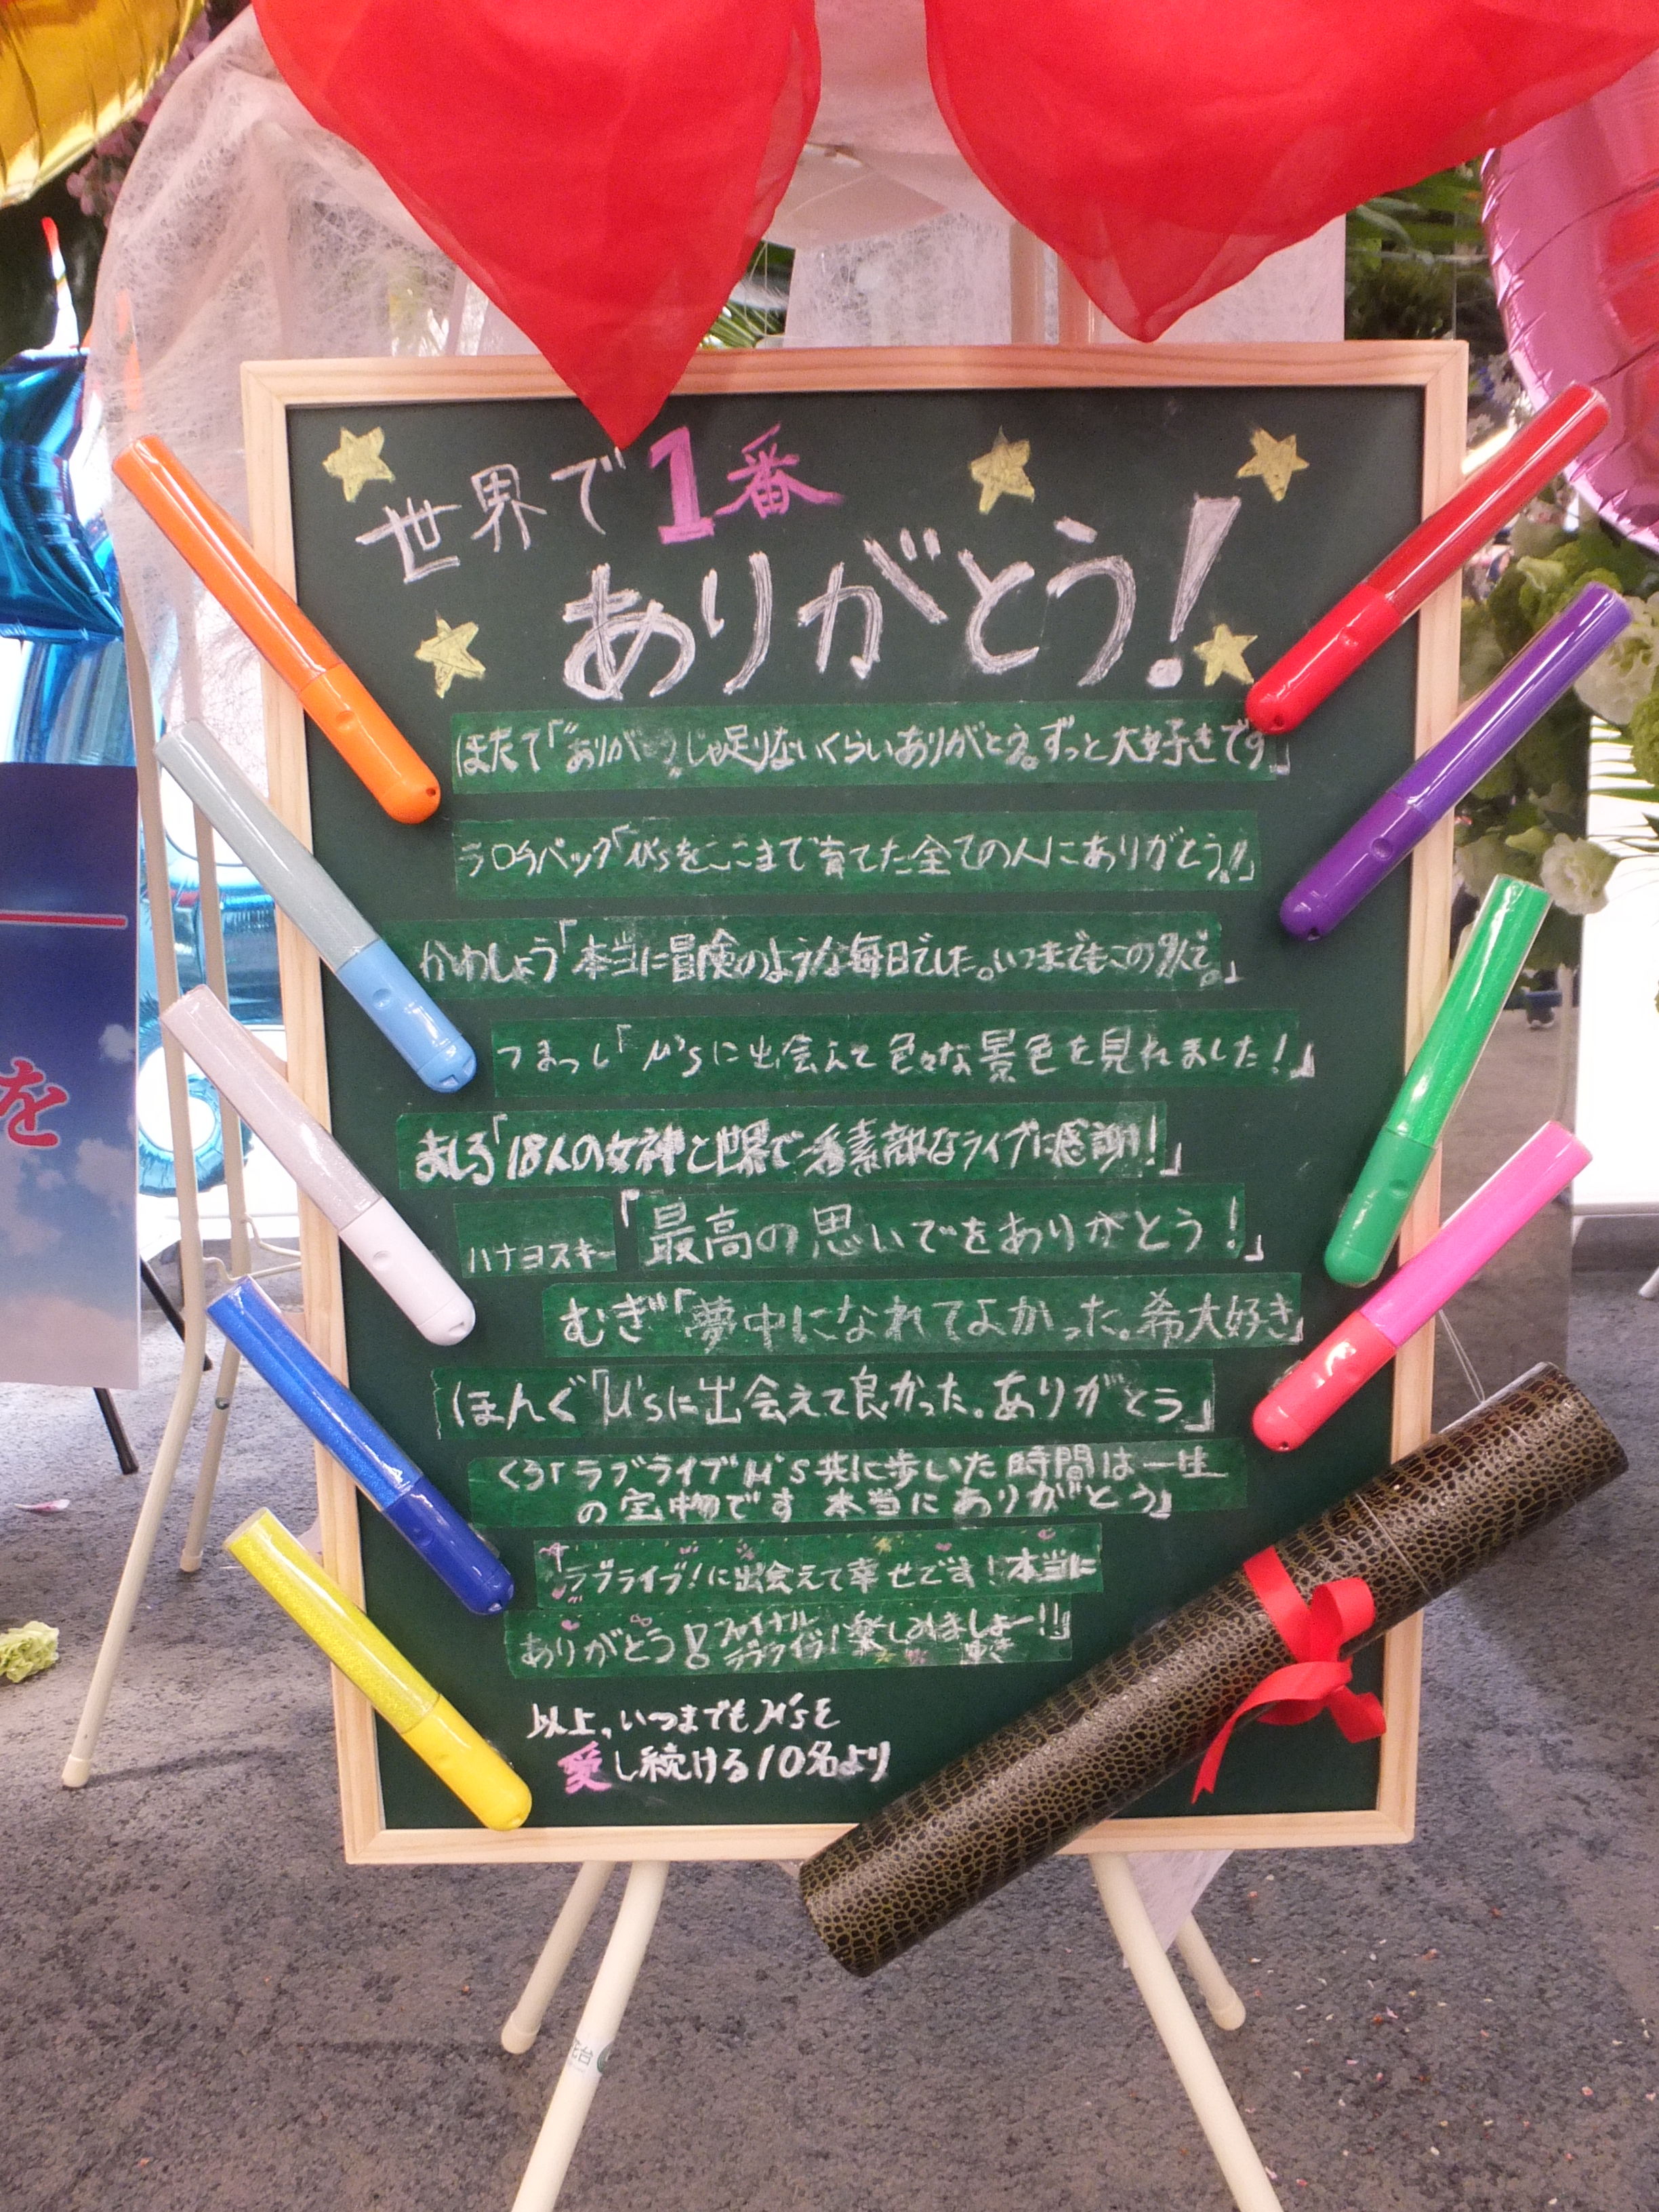 世界で1番
ありがとう!
ほたて「"ありがとう"じゃ足りないくらいありがとう。ずっと大好きです」
「μ'sをここまで育てた全ての人にありがとう!!」
かわしょう「本当に冒険のような毎日でした。いつまでもこの9人で。」
つまっし「μ'sに出会えて色々な景色を見れました!」
ましろ「18人の女神と世界で一番素敵なライブに感謝!」
ハナヨスキー「最高の思いでをありがとう!」
むぎ「夢中になれてよかった。希大好き」
ほんぐ「μ'sに出会えて良かった。ありがとう」
くろ「ラブライブμ's共に歩いた時間は一生
の宝物です 本当にありがとう」
「ラブライブ!に出会えて幸せです!本当に
ありがとう!ファイナルラブライブ!楽しみましょー!!」
ゆき
以上,いつまでもμ'sを
愛し続ける10名より
を